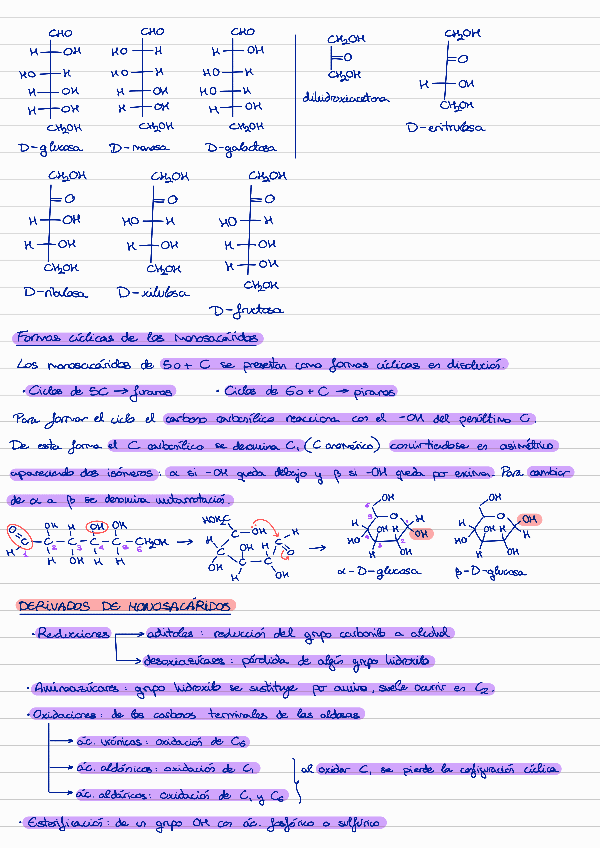 CHO CHO CHO CH₂OH CH₂OH
H OH HO H H OH =O =O
HO H HO H HO H CH₂OH H OH
H OH H OH HO H dihidroxiacetona CH₂OH
H OH H OH H OH D-eritrulosa
CH₂OH CH₂OH CH₂OH
D-glucosa D-manosa D-galactosa
CH₂OH CH₂OH CH₂OH
=O =O =O
H OH HO H HO H
H OH H OH H OH
CH₂OH CH₂OH H OH
D-ribulosa D-xilulosa CH₂OH
D-fructosa
Formas cíclicas de los monosacáridos
Los monosacáridos de 5 o + C se presentan como formas cíclicas en disolución.
· Ciclos de 5C → furanos · Ciclos de 6 o + C → piranos
Para formar el ciclo el carbono carbonílico reacciona con el -OH del penúltimo C.
De esta forma el C carbonílico se denomina C₁ (C anomérico) convirtiendose en asimétrico
apareciendo dos isómeros: α si -OH queda debajo y β si -OH queda por encima. Para cambiar
de α a β se denomina mutarrotación.
α-D-glucosa β-D-glucosa
DERIVADOS DE MONOSACÁRIDOS
· Reducciones → alditoles: reducción del grupo carbonilo a alcohol
→ desoxiazúcares: pérdida de algún grupo hidroxilo
· Aminoazúcares: grupo hidroxilo se sustituye por amino, suele ocurrir en C₂.
· Oxidaciones: de los carbonos terminales de las aldosas
→ ác. urónicos: oxidación de C₆
→ ác. aldónicos: oxidación de C₁ } al oxidar C₁ se pierde la configuración cíclica
→ ác. aldáricos: oxidación de C₁ y C₆
· Esterificación: de un grupo OH con ác. fosfórico o sulfúrico